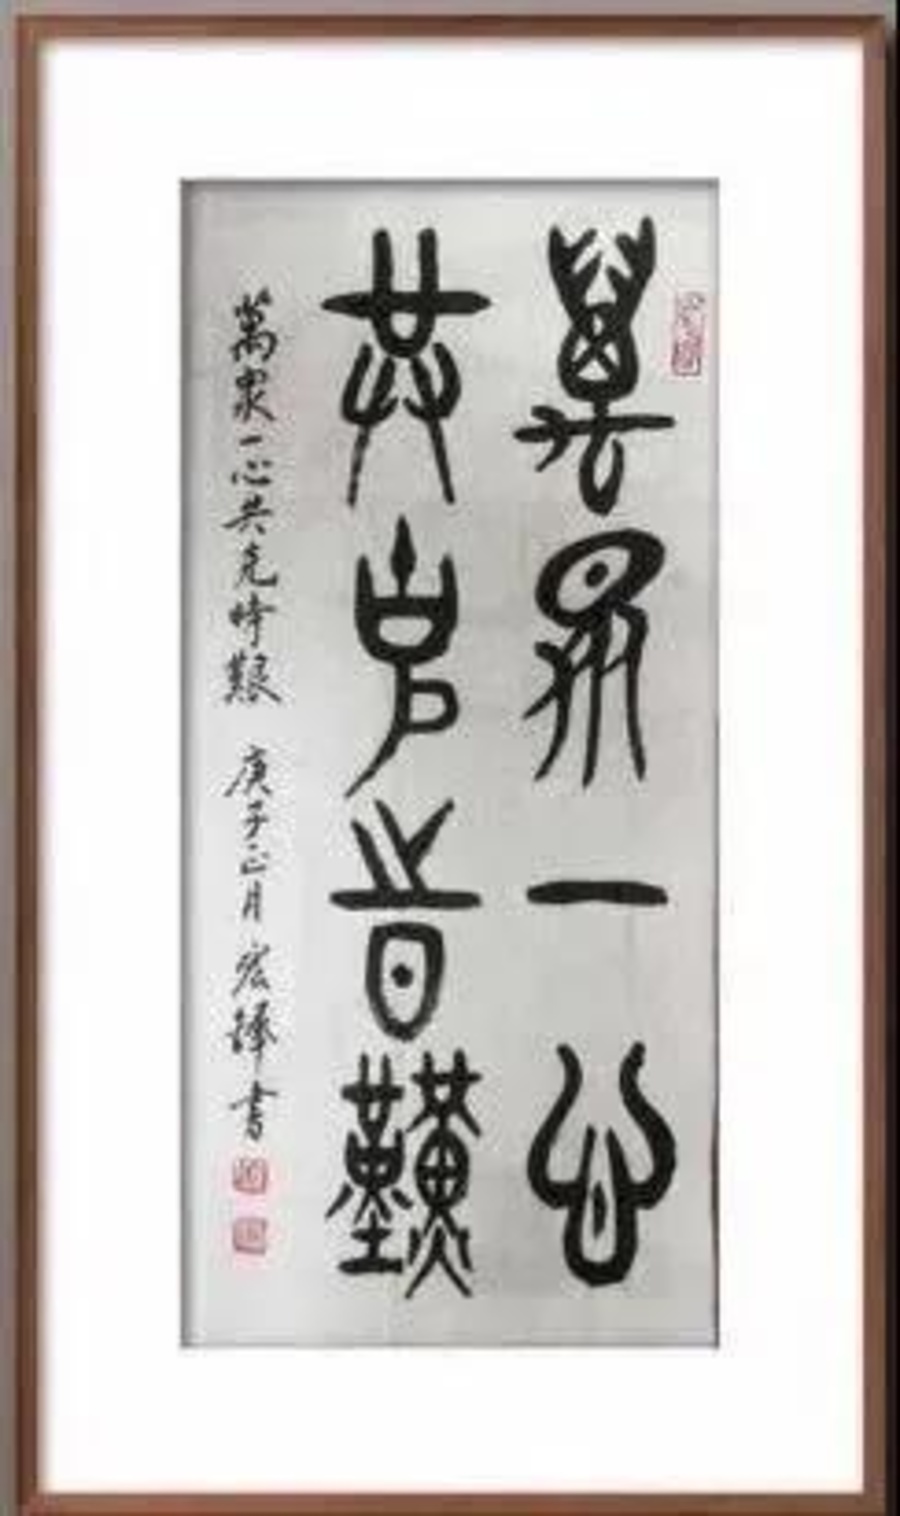 萬眾一心
共克時艱
萬眾一心共克時艱 庚子正月 宏鋒書